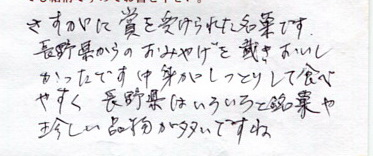 さすがに賞を受けられた名菓です.
長野県からのおみやげを戴きおいし
かったです中身がしっとりして食べ
やすく 長野県はいろいろと銘菓や
珍しい品物が多いですね